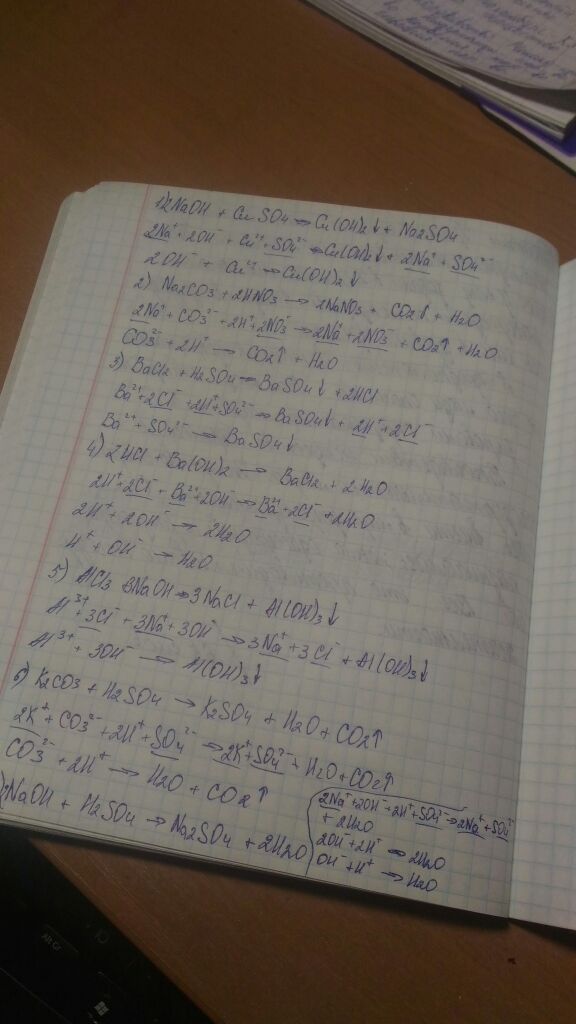 1) 2NaOH + CuSO4 → Cu(OH)2↓ + Na2SO4
2Na⁺ + 2OH⁻ + Cu²⁺ + SO4²⁻ → Cu(OH)2↓ + 2Na⁺ + SO4²⁻
2OH⁻ + Cu²⁺ → Cu(OH)2↓
2) Na2CO3 + 2HNO3 → 2NaNO3 + CO2↓ + H2O
2Na⁺ + CO3²⁻ + 2H⁺ + 2NO3⁻ → 2Na⁺ + 2NO3⁻ + CO2↑ + H2O
CO3²⁻ + 2H⁺ → CO2↑ + H2O
3) BaCl2 + H2SO4 → BaSO4↓ + 2HCl
Ba²⁺ + 2Cl⁻ + 2H⁺ + SO4²⁻ → BaSO4↓ + 2H⁺ + 2Cl⁻
Ba²⁺ + SO4²⁻ → BaSO4↓
4) 2HCl + Ba(OH)2 → BaCl2 + 2H2O
2H⁺ + 2Cl⁻ + Ba²⁺ + 2OH⁻ → Ba²⁺ + 2Cl⁻ + 2H2O
2H⁺ + 2OH⁻ → 2H2O
H⁺ + OH⁻ → H2O
5) AlCl3 3NaOH → 3NaCl + Al(OH)3↓
Al³⁺ + 3Cl⁻ + 3Na⁺ + 3OH⁻ → 3Na⁺ + 3Cl⁻ + Al(OH)3↓
Al³⁺ + 3OH⁻ → Al(OH)3↓
6) K2CO3 + H2SO4 → K2SO4 + H2O + CO2↑
2K⁺ + CO3²⁻ + 2H⁺ + SO4²⁻ → 2K⁺ + SO4²⁻ + H2O + CO2↑
CO3²⁻ + 2H⁺ → H2O + CO2↑
) 2NaOH + H2SO4 → Na2SO4 + 2H2O
2Na⁺ + 2OH⁻ + 2H⁺ + SO4²⁻ → 2Na⁺ + SO4²⁻
+ 2H2O
2OH⁻ + 2H⁺ → 2H2O
OH⁻ + H⁺ → H2O
Alt Gr